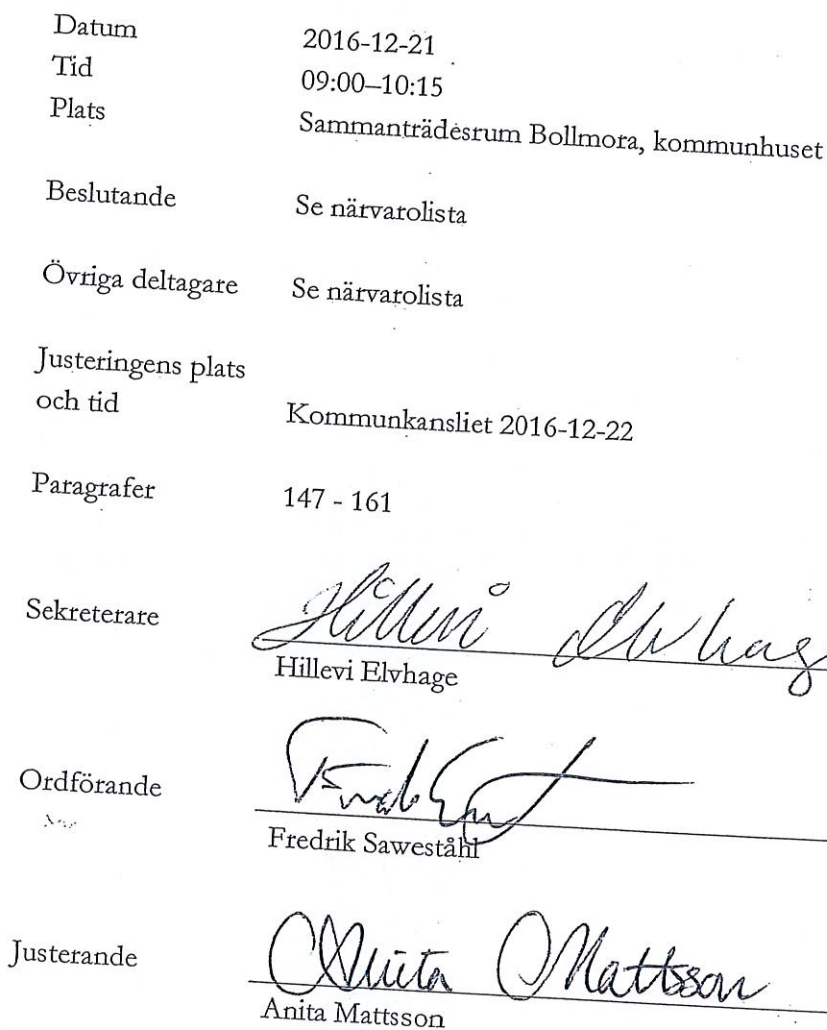 Datum 2016-12-21
Tid 09:00–10:15
Plats Sammanträdesrum Bollmora, kommunhuset
Beslutande Se närvarolista
Övriga deltagare Se närvarolista
Justeringens plats
och tid Kommunkansliet 2016-12-22
Paragrafer 147 - 161
Sekreterare Hillevi Elvhag
Hillevi Elvhage
Ordförande
Fredrik Saweståhl
Justerande Anita Mattsson
Anita Mattsson